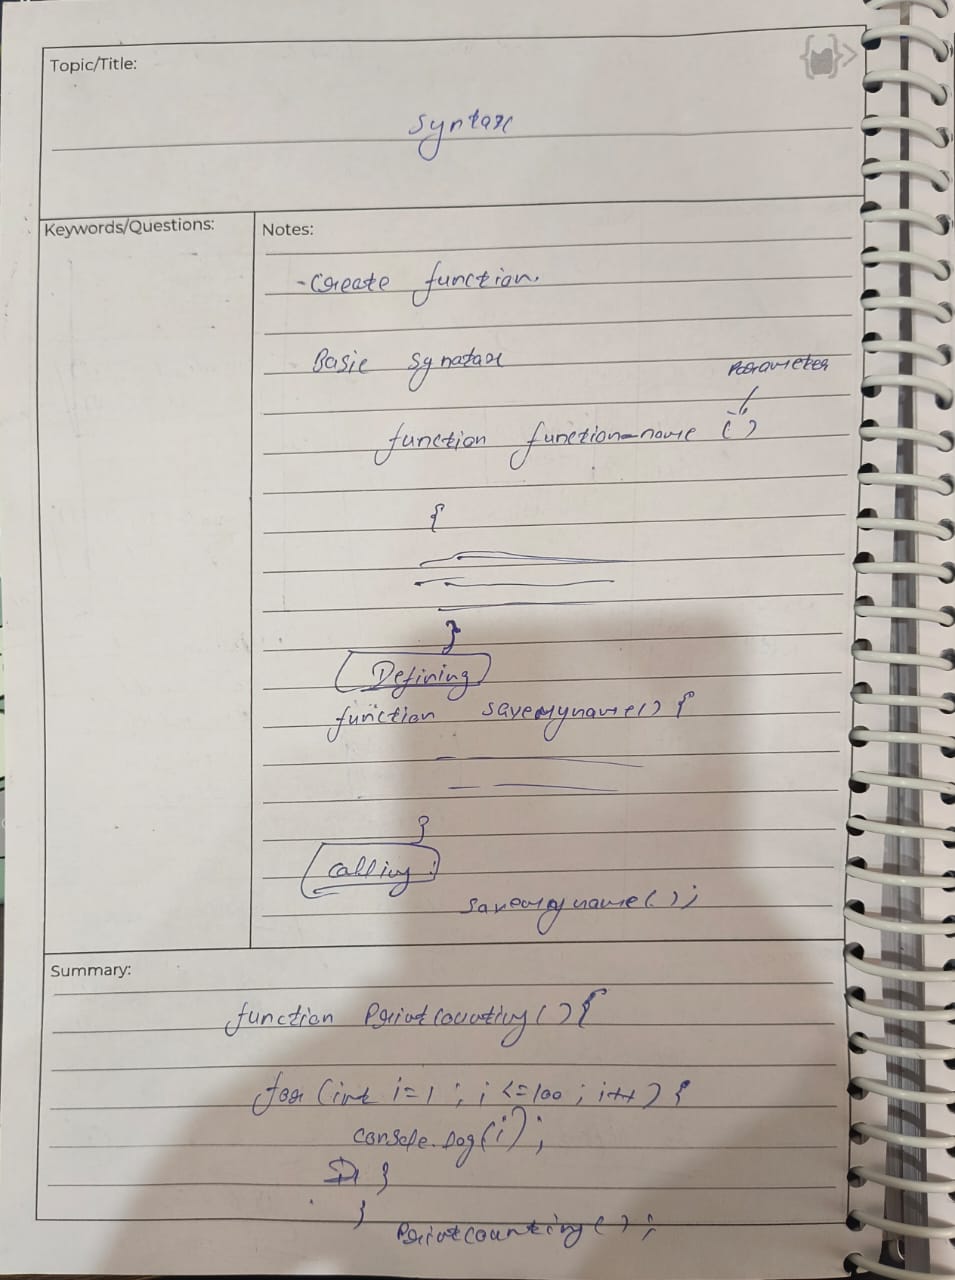 Topic/Title:
Syntax
Keywords/Questions:
Notes:
- Create function.
Basic Synatax
Parameter
function function-name ( )
{
}
Defining
function savemyname() {
}
Calling :
savemyname( );
Summary:
function Printcounting ( ) {
for (int i=1 ; i <=100 ; i++ ) {
console.log(i);
}
}
Printcounting ( ) ;